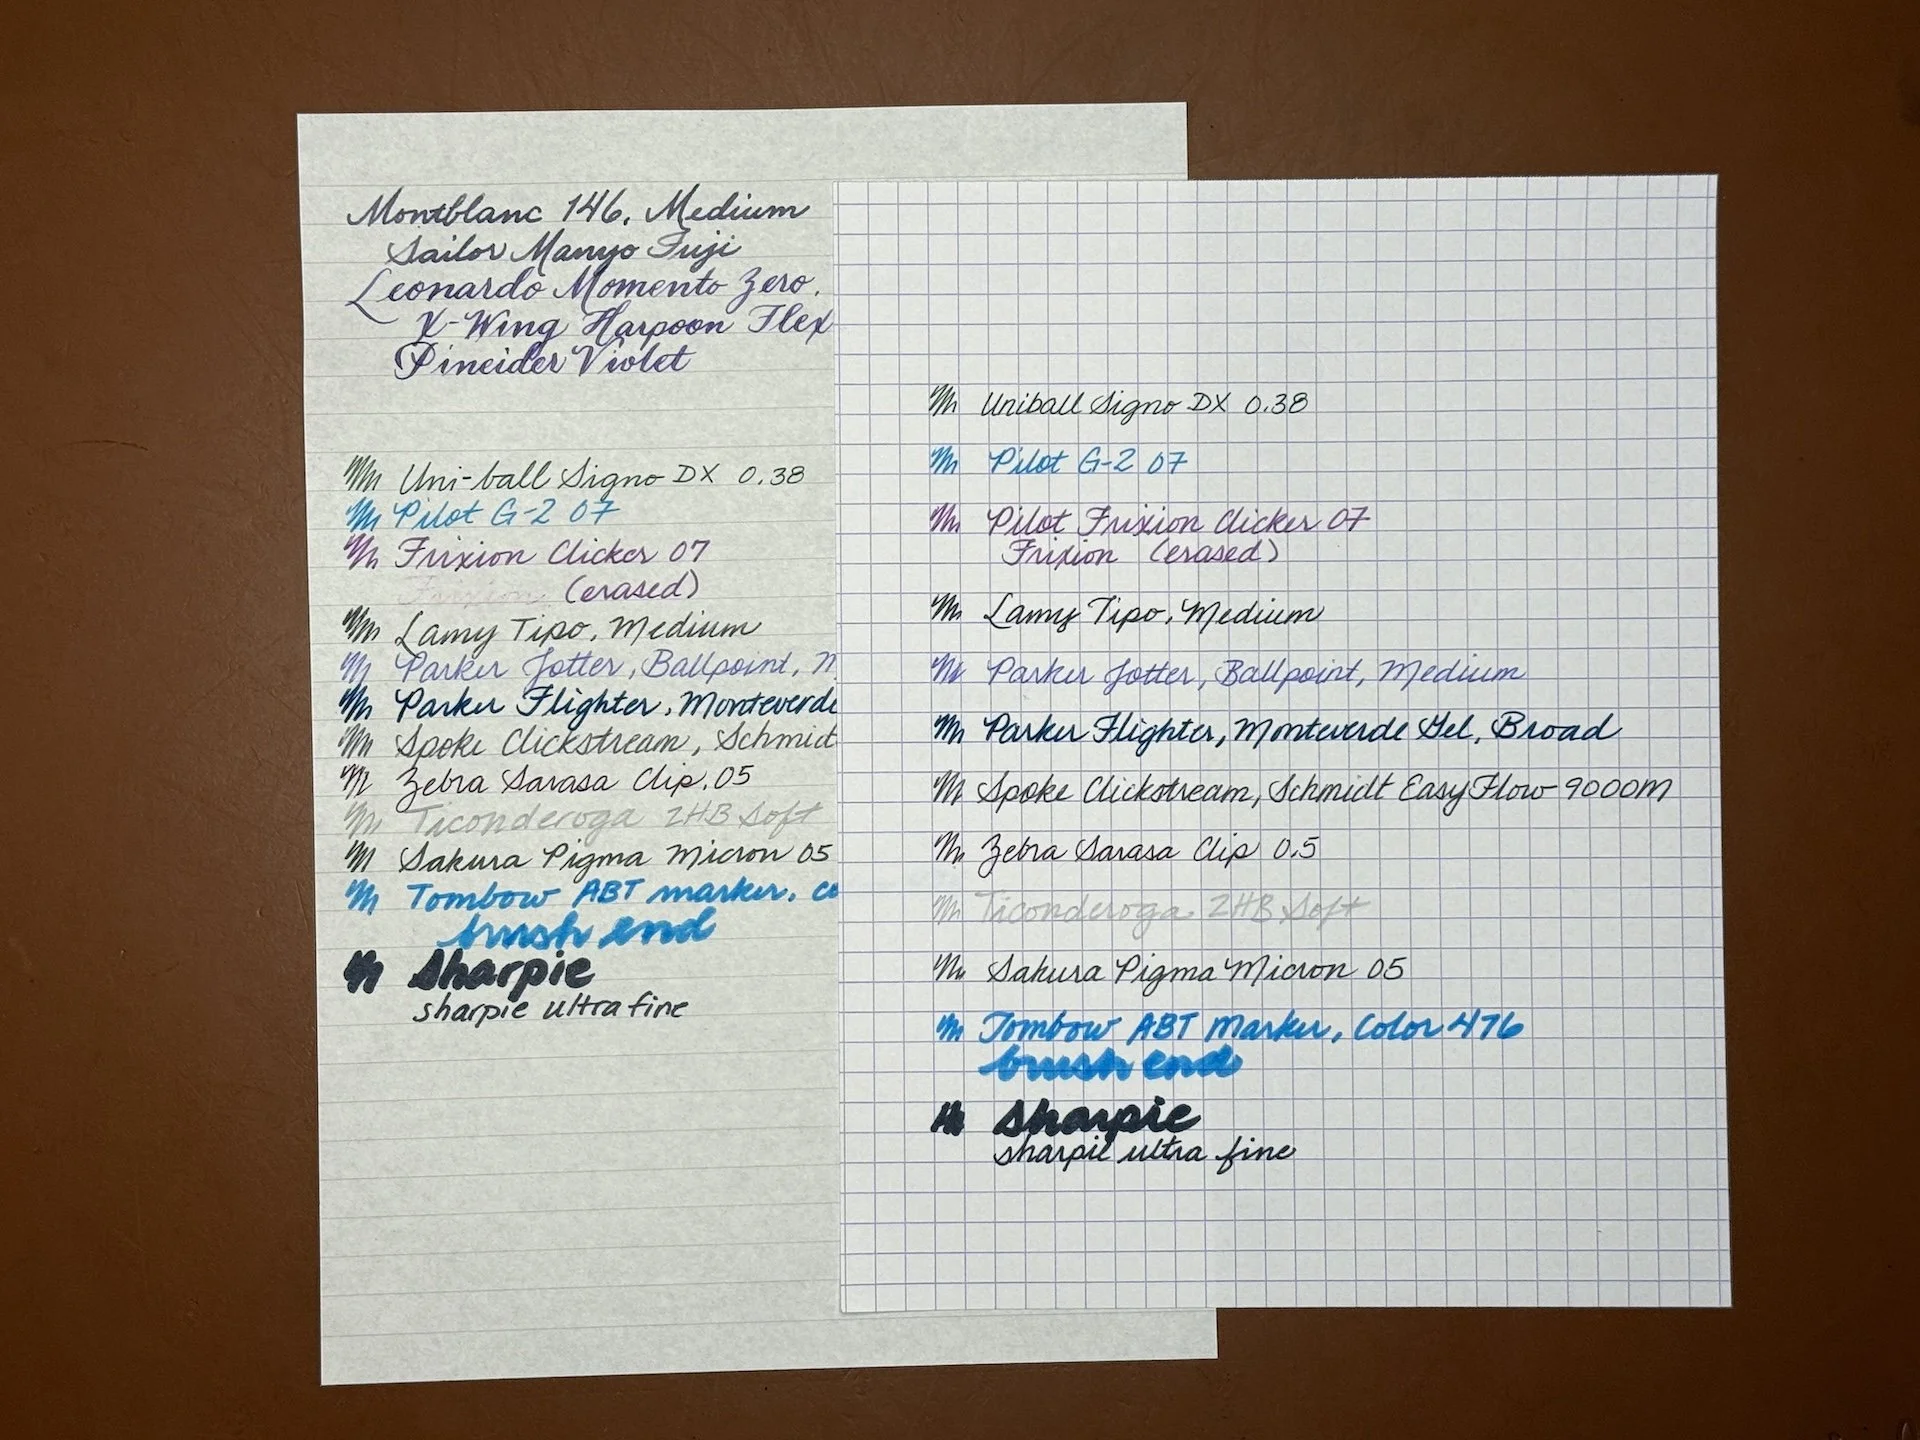 Montblanc 146, Medium
Sailor Manyo Fuji
Leonardo Momento Zero,
X-Wing Harpoon Flex
Pineider Violet
Uni-ball Signo DX 0.38
Pilot G-2 07
Frixion Clicker 07
Frixion (erased)
Lamy Tipo, Medium
Parker Jotter, Ballpoint, M
Parker Flighter, Monteverde
Spoke Clickstream, Schmidt
Zebra Sarasa Clip, 05
Ticonderoga 2HB Soft
Sakura Pigma Micron 05
Tombow ABT marker, co
brush end
Sharpie
sharpie ultra fine
Uniball Signo DX 0.38
Pilot G-2 07
Pilot Frixion Clicker 07
Frixion (erased)
Lamy Tipo, Medium
Parker Jotter, Ballpoint, Medium
Parker Flighter, Monteverde Gel, Broad
Spoke Clickstream, Schmidt EasyFlow 9000M
Zebra Sarasa Clip 0.5
Ticonderoga 2HB Soft
Sakura Pigma Micron 05
Tombow ABT Marker, Color 476
brush end
Sharpie
sharpie ultra fine